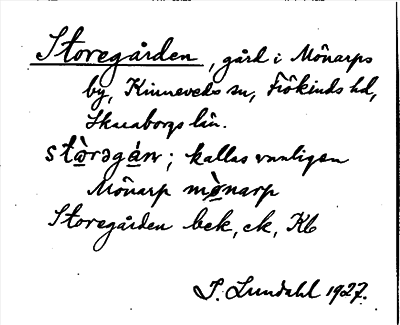 Storegården, gård i Mönarps
by, Kinneveds sn, Frökinds hd,
Skaraborgs län.
stòrəgán; kallas vanligen
Mönarp mònarp
Storegården bek, ek, Kb
I. Lundahl 1927.